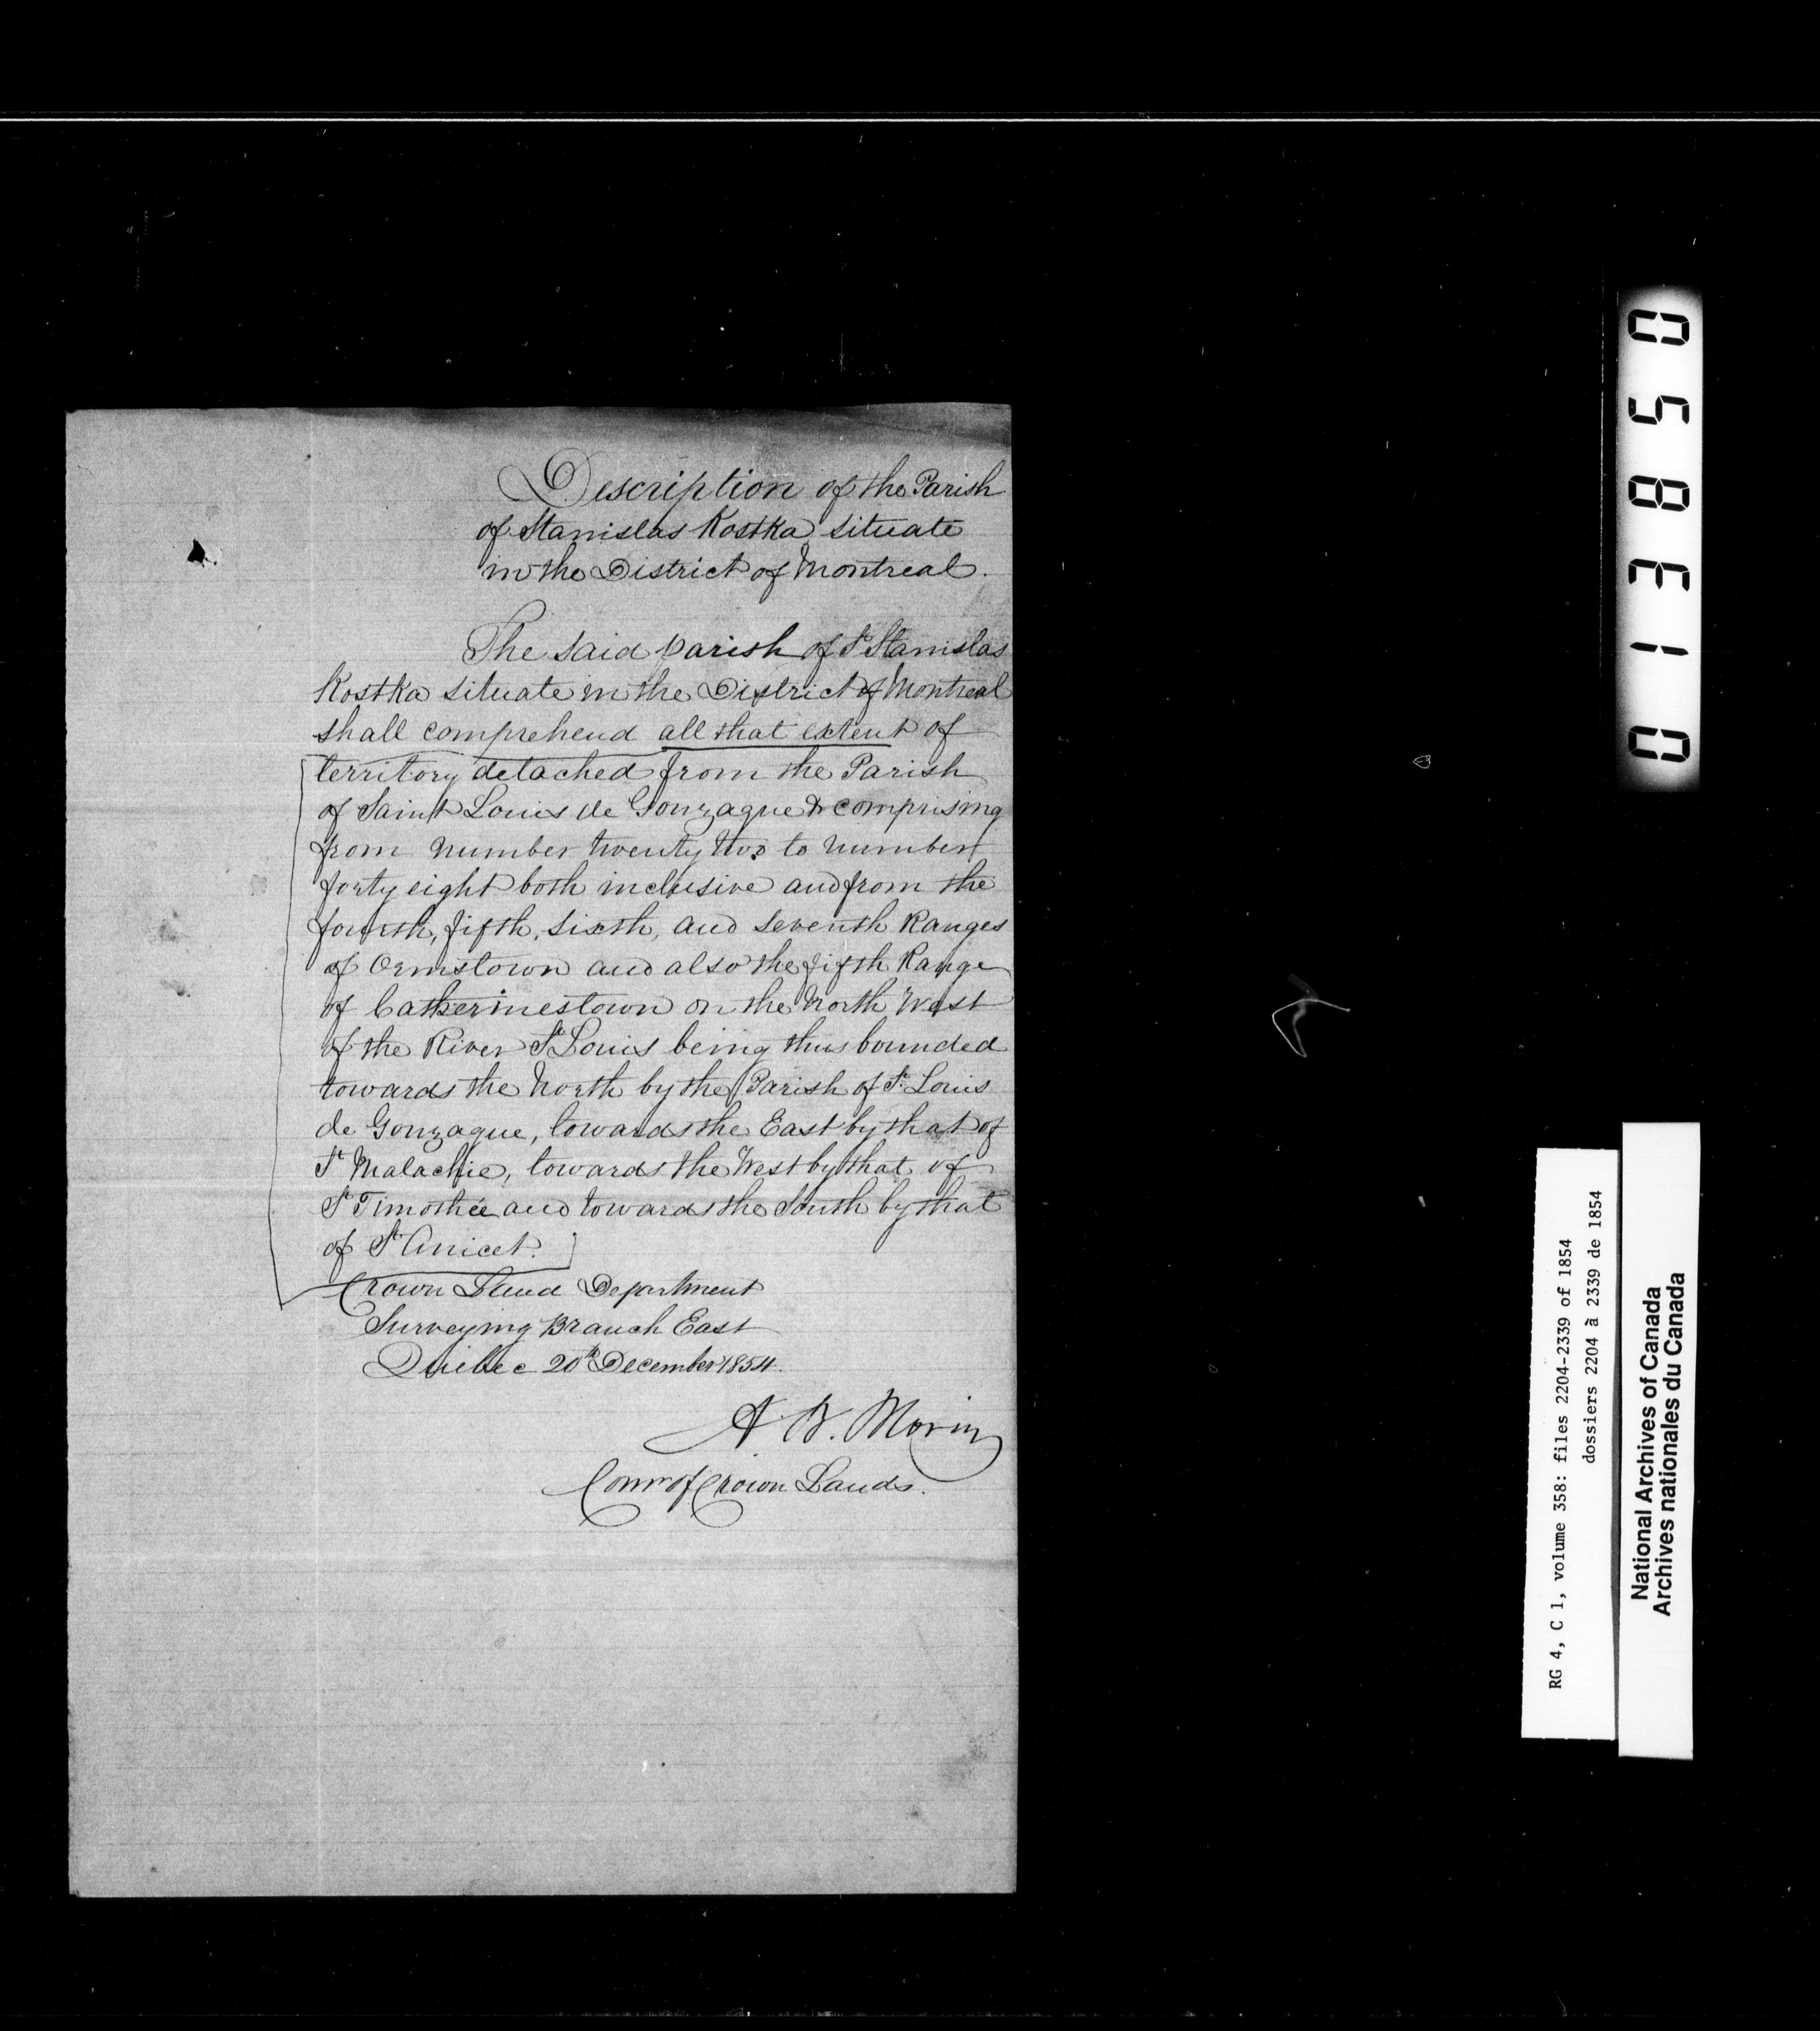 Description of the Parish
of Stanislas Kostka situate
in the District of Montreal.
The said parish of St Stanislas
Kostka situate in the District of Montreal
shall comprehend all that extent of
territory detached from the Parish
of Saint Louis de Gonzague & comprising
from number twenty two to number
forty eight both inclusive and from the
fourth, fifth, sixth, and seventh Ranges
of Ormstown and also the fifth Range
of Catherinestown on the North West
of the River St Louis being thus bounded
towards the North by the Parish of St. Louis
de Gonzague, towards the East by that of
St Malachie, towards the West by that of
St Timothée and towards the South by that
of St Anicet.
Crown Land Department
Surveying Branch East
Quebec 20th December 1854.
A. N. Morin
Comr of Crown Lands.
013850
RG 4, C 1, volume 358: files 2204-2339 of 1854
dossiers 2204 à 2339 de 1854
National Archives of Canada
Archives nationales du Canada